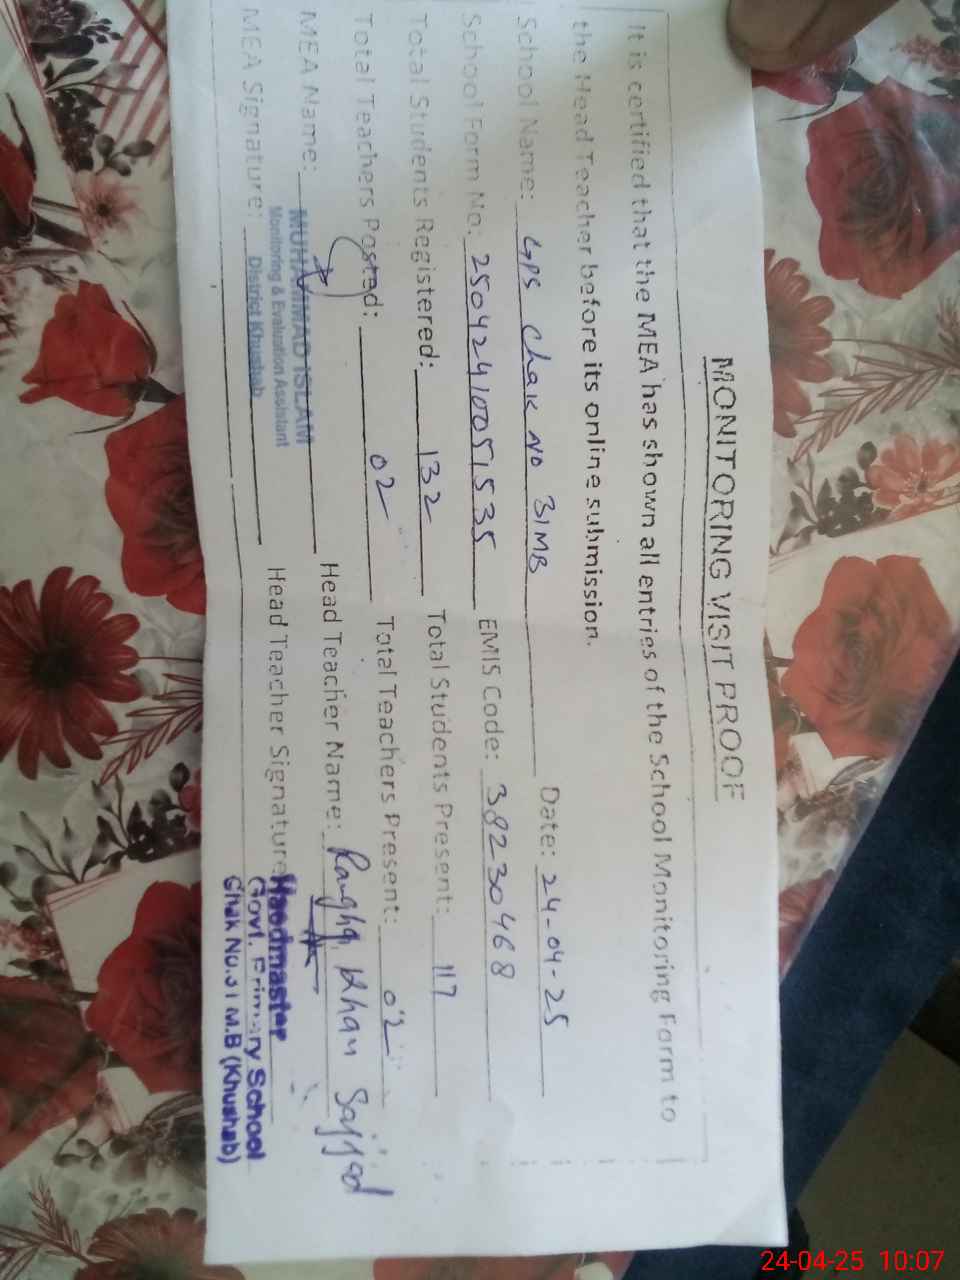 MONITORING VISIT PROOF
It is certified that the MEA has shown all entries of the School Monitoring Form to
the Head Teacher before its online submission.
School Name: GPS Chak No 31MB Date: 24-04-25
School Form No: 25042410051535 EMIS Code: 38230468
Total Students Registered: 132 Total Students Present: 117
Total Teachers Posted: 02 Total Teachers Present: 02
MEA Name: MUHAMMAD ISLAM Head Teacher Name: Khan Sajjad
Monitoring & Evaluation Assistant
MEA Signature: District Khushab Head Teacher Signature
Headmaster
Govt. Primary School
Chak No.31 M.B (Khushab)
24-04-25 10:07